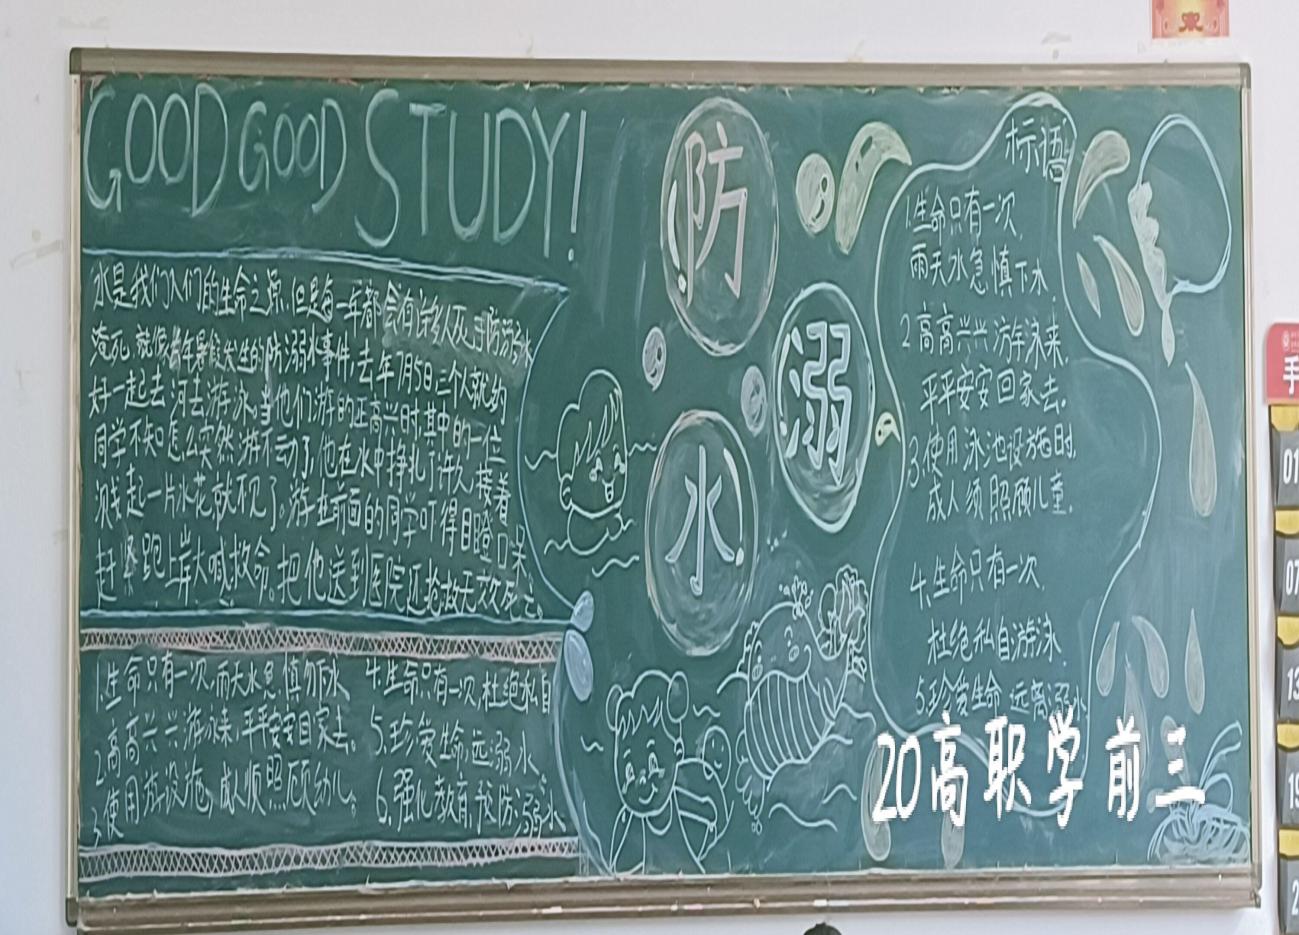 GOOD GOOD STUDY!
水是我们人们的生命之源,但是每一年都会有许多人死于防溺水
淹死,就像青年暑假发生的防溺水事件,去年7月5日三个人就约
好一起去河去游泳,当他们游的正高兴时,其中的一位
同学不知怎么突然游不动了,他在水中挣扎了许久,接着
溅起一片水花就不见了。游在前面的同学吓得目瞪口呆
赶紧跑上岸大喊救命。把他送到医院还抢救无效死亡。
1.生命只有一次,雨天水急慎下水
2.高高兴兴游泳来,平平安安回家去。
3.使用游设施,成须照顾幼儿。
4.生命只有一次,杜绝私自
5.珍爱生命远溺水。
6.强化教育,预防溺水
防
溺
水
标语
1.生命只有一次,
雨天水急慎下水.
2高高兴兴游泳来,
平平安安回家去.
3.使用泳池设施时,
成人须照顾儿童.
4.生命只有一次,
杜绝私自游泳.
5.珍爱生命 远离溺水
20高职学前三
手
01
07
13
19
2